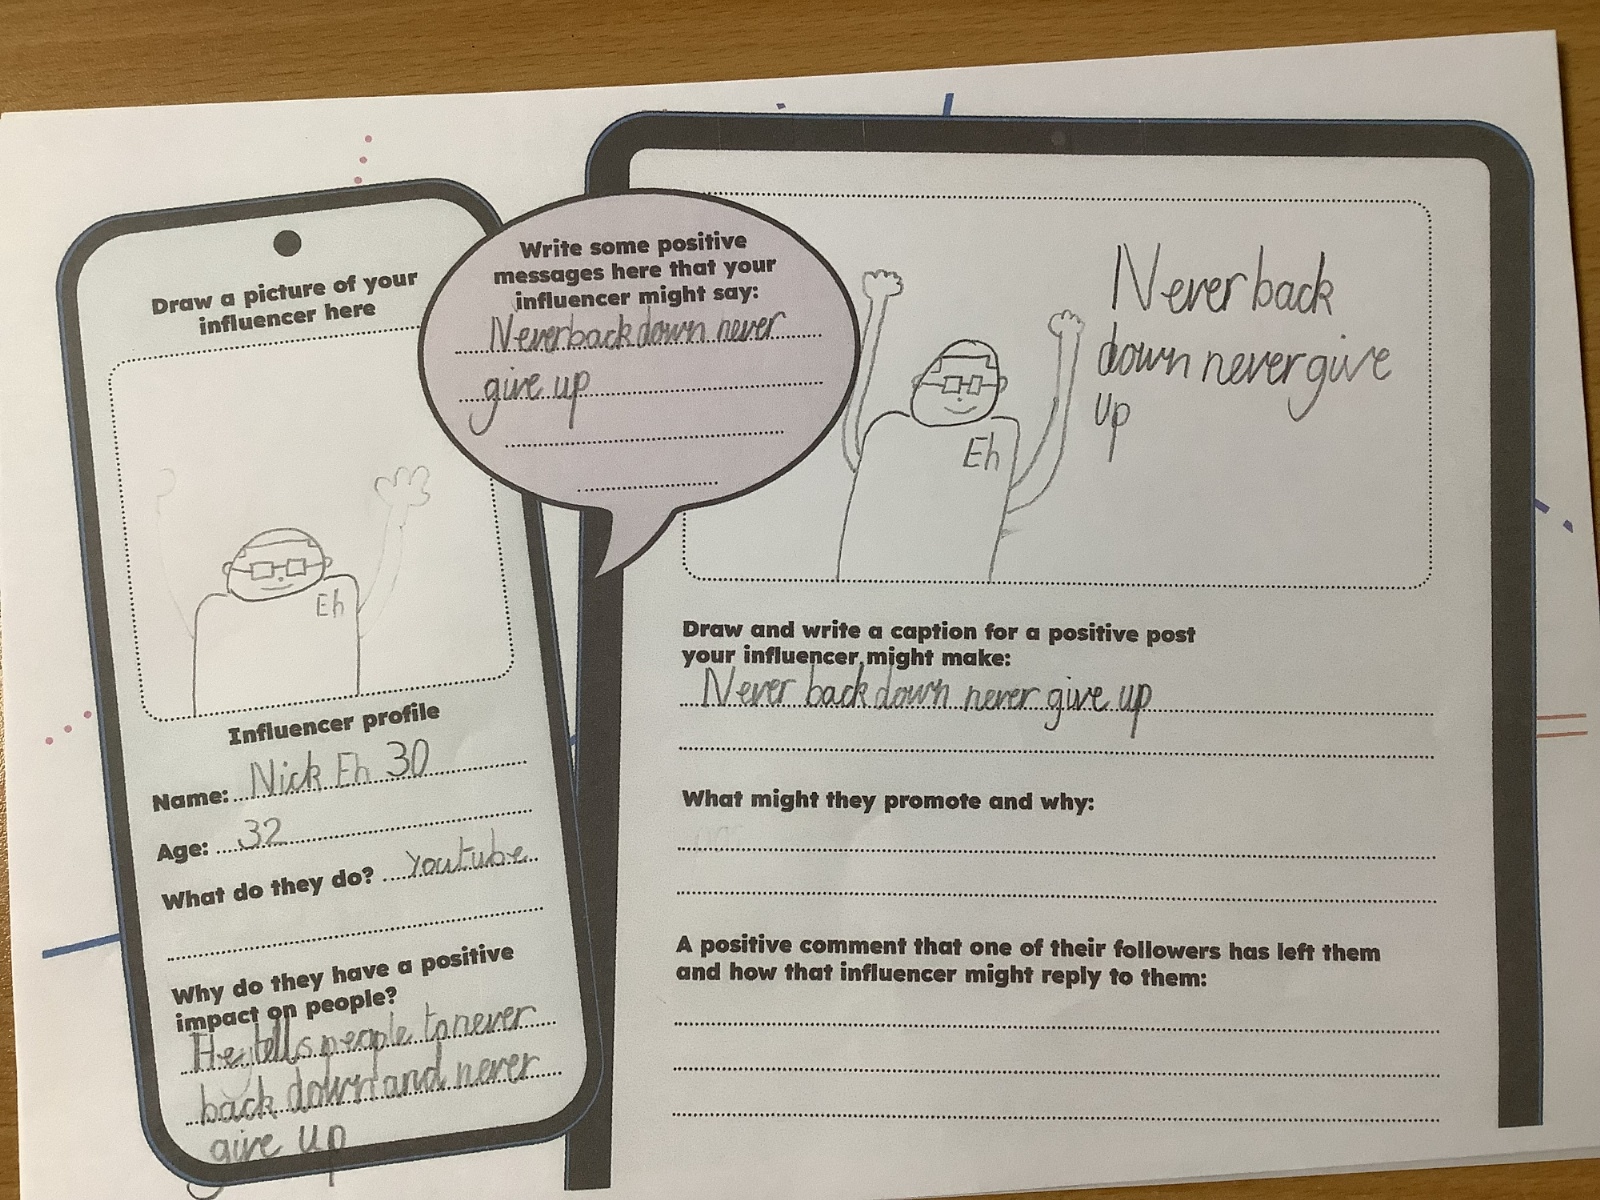 Draw a picture of your
influencer here
Eh
Influencer profile
Name: Nick Eh 30
Age: 32
What do they do? Youtube
Why do they have a positive
impact on people?
He tells people to never
back down and never
give up
Write some positive
messages here that your
influencer might say:
Never back down never
give up
Never back
down never give
up
Eh
Draw and write a caption for a positive post
your influencer might make:
Never back down never give up
What might they promote and why:
A positive comment that one of their followers has left them
and how that influencer might reply to them: